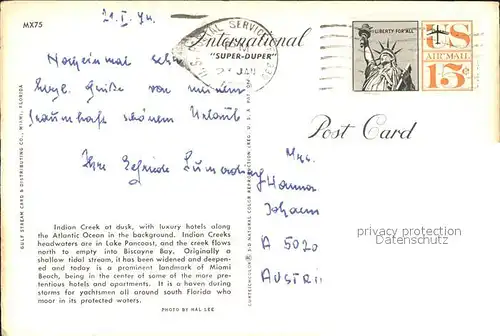 MX75
21.I.74.
International
"SUPER-DUPER"
U.S. POSTAL SERVICE
PM
JAN
LIBERTY FOR ALL
US
AIR MAIL
15¢
Post Card
Noch einmal sehr
herzl. Grüße von meinem
traumhaft schönem Urlaub
Ihre Elfriede
Hanna
Johann
A 5020
AUSTRI
GULF STREAM CARD & DISTRIBUTING CO., MIAMI, FLORIDA
NATURAL COLOR REPRODUCTION (REG. U.S.A. PAT. OFF.)
Indian Creek at dusk, with luxury hotels along
the Atlantic Ocean in the background. Indian Creeks
headwaters are in Lake Pancoast, and the creek flows
north to empty into Biscayne Bay. Originally a
shallow tidal stream, it has been widened and deepen-
ed and today is a prominent landmark of Miami
Beach, being in the center of some of the more pre-
tentious hotels and apartments. It is a haven during
storms for yachtsmen all around south Florida who
moor in its protected waters.
PHOTO BY HAL LEE
oldthing.de
Datenschutz